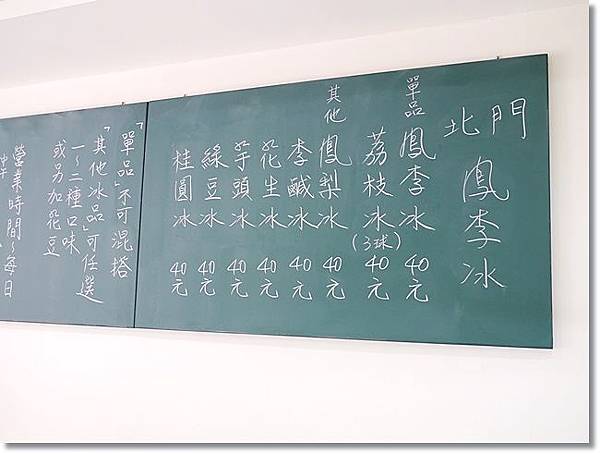 北門
鳳李冰
單品 鳳李冰 40元
荔枝冰(3球) 40元
其他 鳳梨冰 40元
李鹹冰 40元
花生冰 40元
芋頭冰 40元
綠豆冰 40元
桂圓冰 40元
「單品」不可混搭
「其他冰品」可任選
一~二種口味
或另加花豆
營業時間~每日